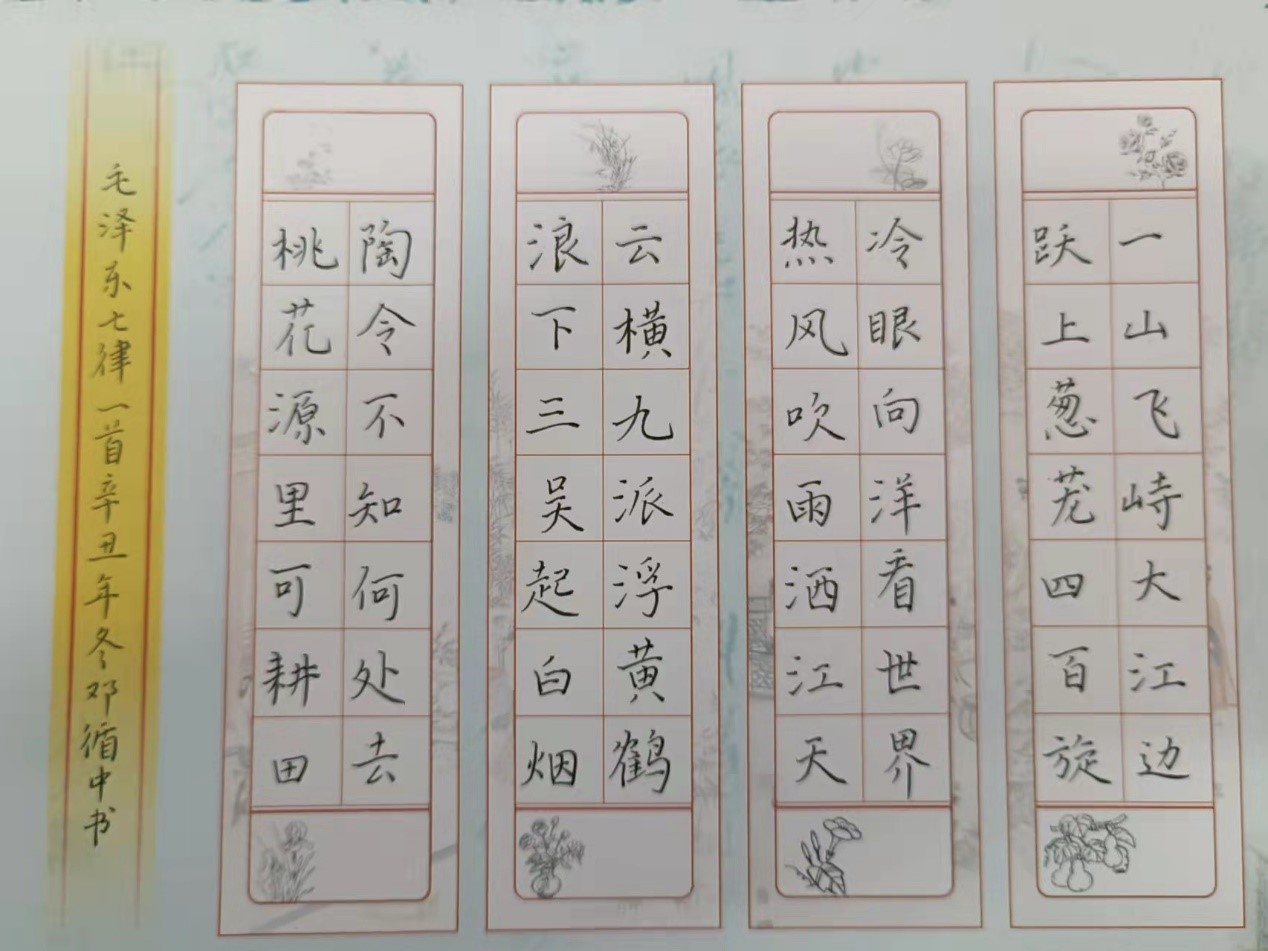 一山飞峙大江边
跃上葱茏四百旋
冷眼向洋看世界
热风吹雨洒江天
云横九派浮黄鹤
浪下三吴起白烟
陶令不知何处去
桃花源里可耕田
毛泽东七律一首辛丑年冬邓循中书